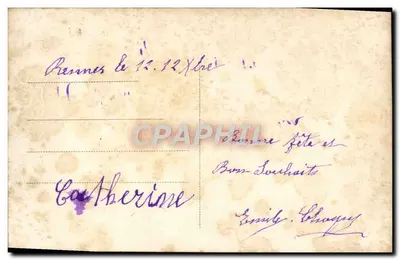 Rennes le 12. 12 Xbre
Bonne fête et
Bons Souhaits
Catherine
Emile
CPAPHIL